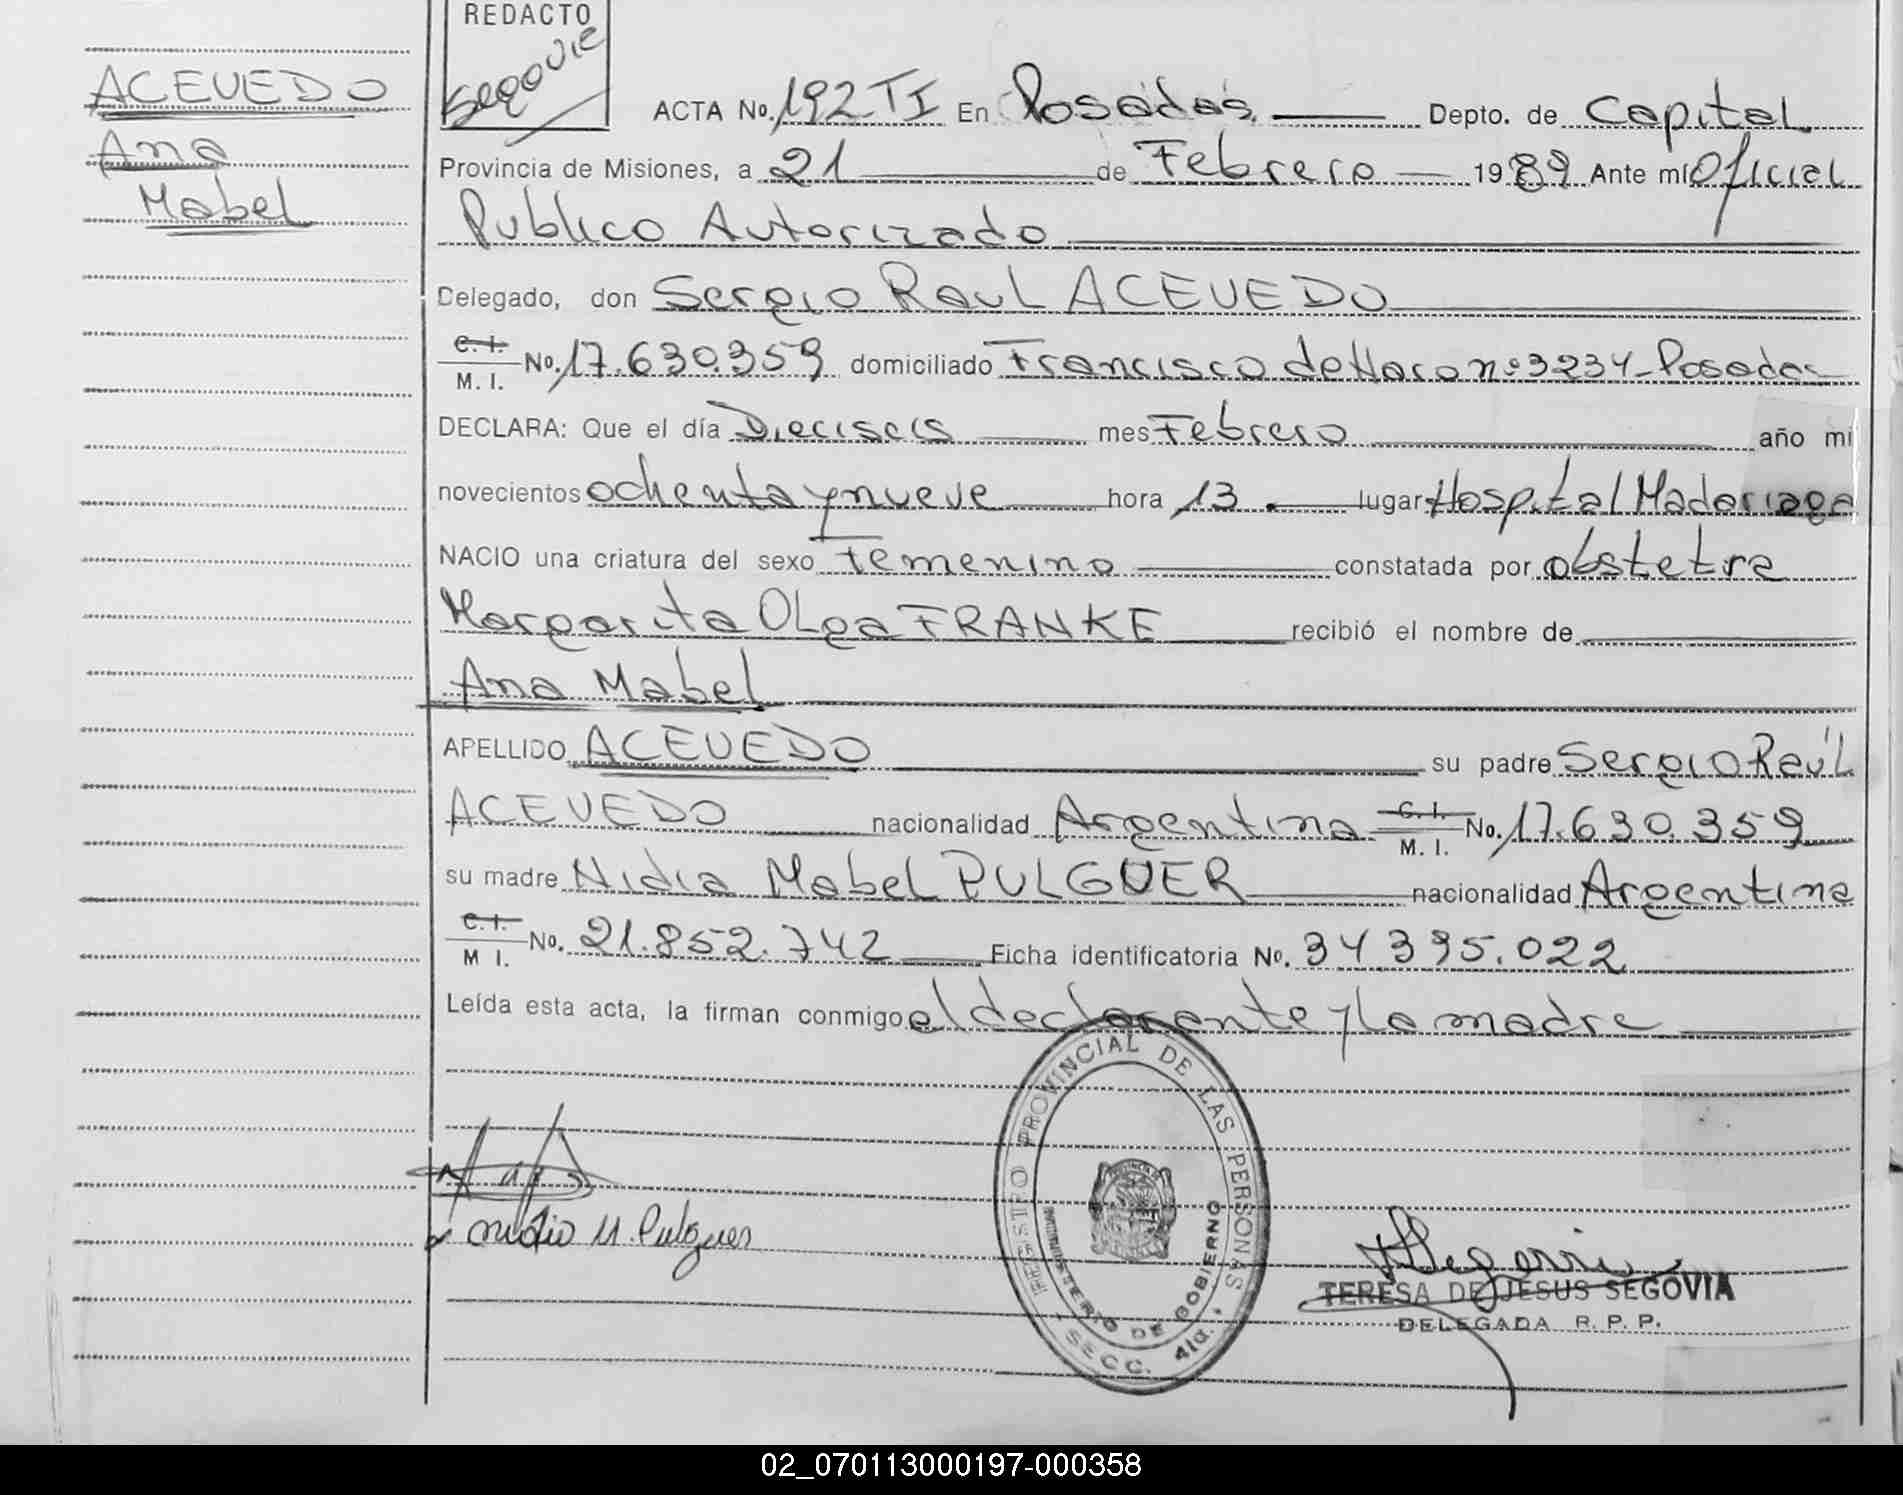 REDACTO
Segovia
ACEVEDO
Ana
Mabel
ACTA No. 192 TI En Posadas, Depto. de Capital
Provincia de Misiones, a 21 de Febrero 1989 Ante mí Oficial
Publico Autorizado
Delegado, don Sergio Raul ACEVEDO
C. I. M. I. No. 17.630.359 domiciliado Francisco de Haro nº 3234 - Posadas
DECLARA: Que el día Dieciseis mes Febrero año mi
novecientos ochenta y nueve hora 13. lugar Hospital Madariaga
NACIO una criatura del sexo Femenino constatada por obstetra
Margarita Olga FRANKE recibió el nombre de
Ana Mabel
APELLIDO ACEVEDO su padre Sergio Raúl
ACEVEDO nacionalidad Argentina C. I. M. I. No. 17.630.359
su madre Nidia Mabel PULGUER nacionalidad Argentina
C. I. M I. No. 21.852.742 Ficha identificatoria No. 34 395.022
Leída esta acta, la firman conmigo el declarante y la madre
REGISTRO PROVINCIAL DE LAS PERSONAS
MINISTERIO DE GOBIERNO
SECC. 4ta.
Nidia M. Pulguer
TERESA DE JESUS SEGOVIA
DELEGADA R. P. P.
02_070113000197-000358